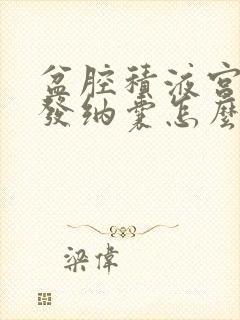 盆腔積液宮
發纳囊怎麼
梁偉